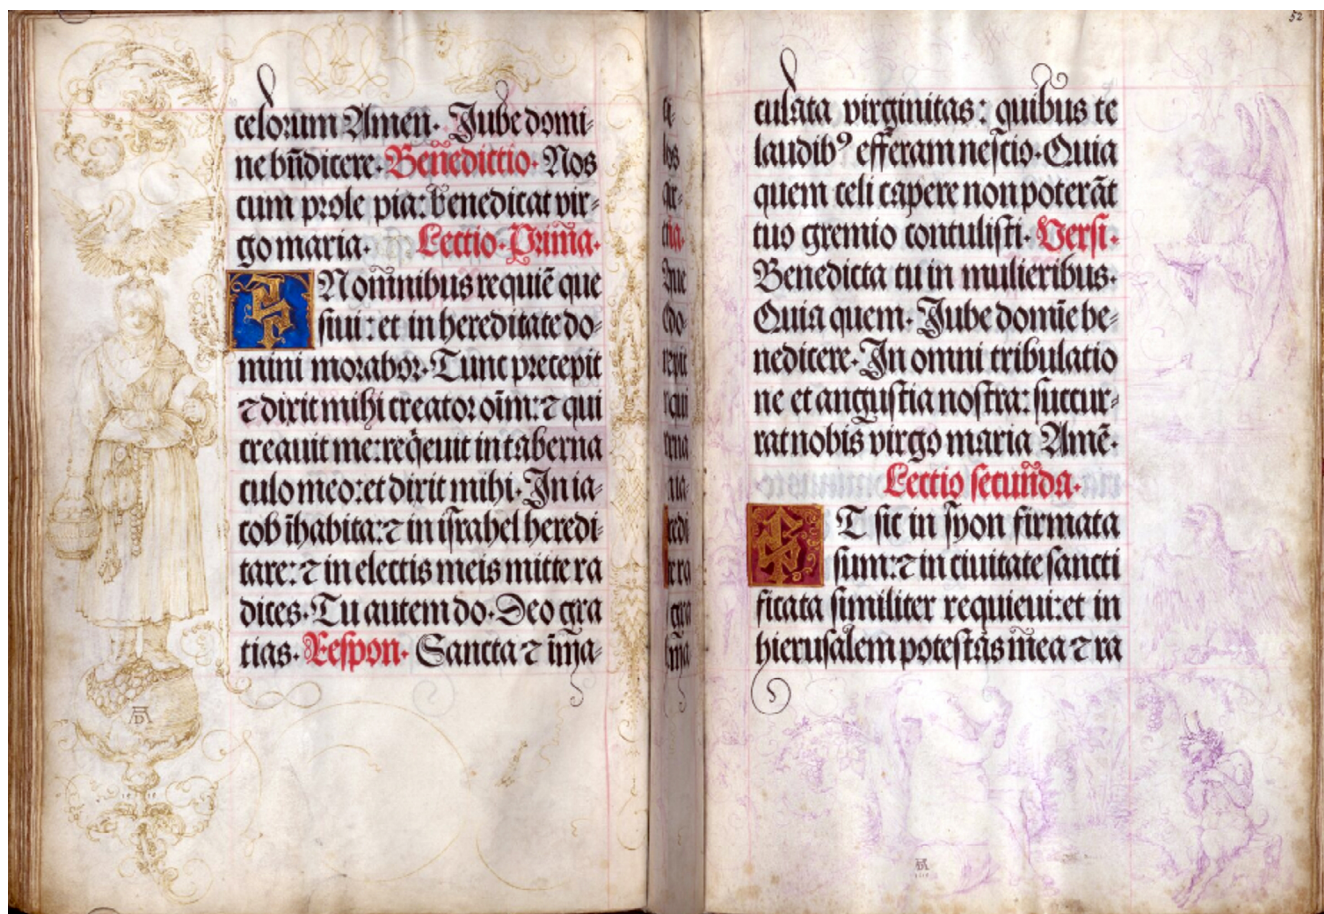 celorum Amen. Jube domi-
ne bñdicere. Benedictio. Nos
cum prole pia: benedicat vir-
go maria. Lectio. Prima.
IN omnibus requiē que
siui: et in hereditate do-
mini morabor. Tunc precepit
⁊ dixit mihi creator oīm: ⁊ qui
creauit me: reqͥeuit in taberna
culo meo: et dixit mihi. In ia-
cob īhabita: ⁊ in israhel heredi-
tare: ⁊ in electis meis mitte ra
dices. Tu autem do. Deo gra
tias. Respon. Sancta ⁊ im̄a-
52
culata virginitas: quibus te
laudibꝰ efferam nescio. Quia
quem celi capere non poterāt
tuo gremio contulisti. Versi.
Benedicta tu in mulieribus.
Quia quem. Jube domīe be-
nedicere. In omni tribulatio
ne et angustia nostra: succur-
rat nobis virgo maria Amē.
Lectio secunda.
ET sic in syon firmata
sum: ⁊ in ciuitate sancti
ficata similiter requieui: et in
hierusalem potestas mea ⁊ ra